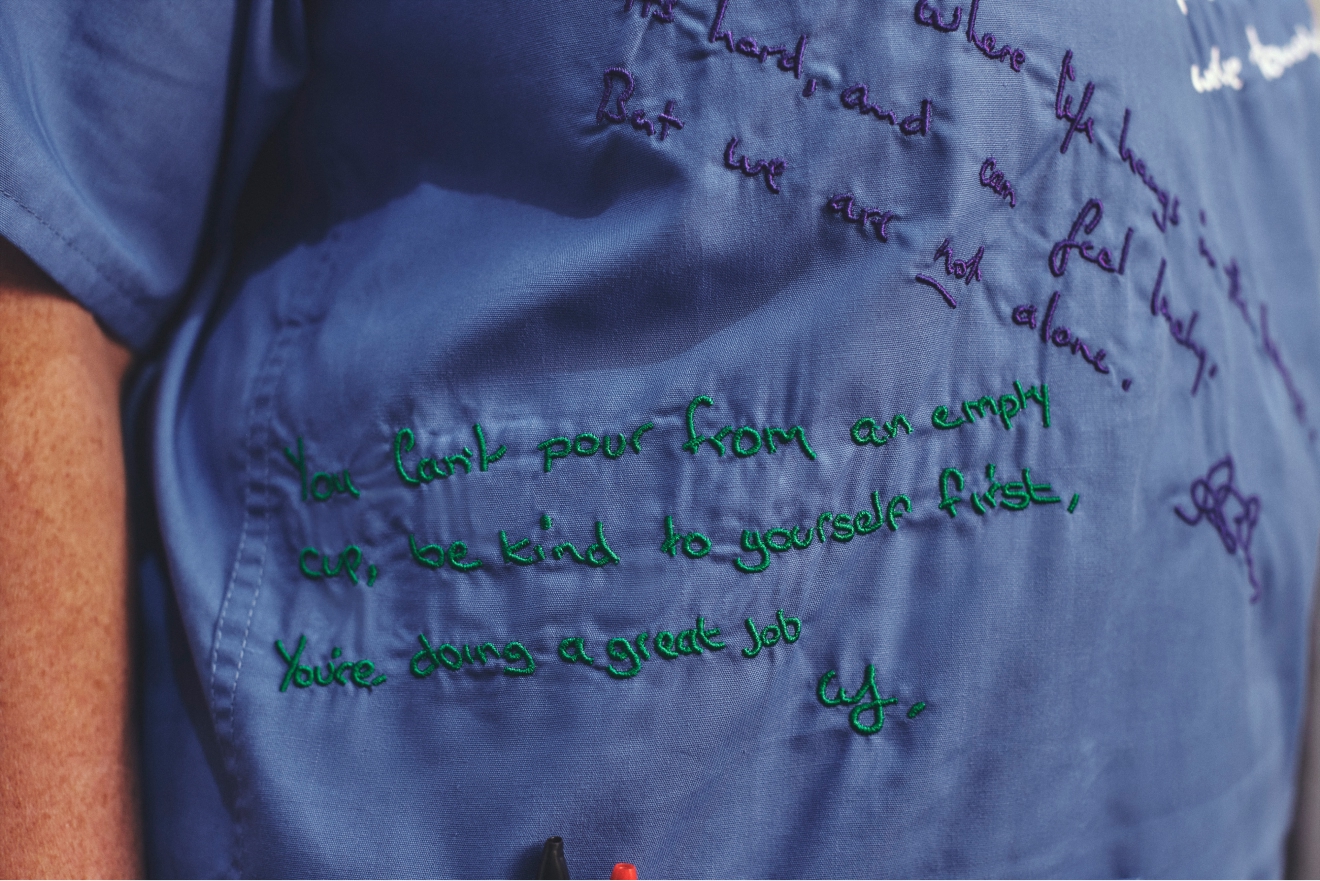 where life hangs in the
hard, and can feel lonely.
But we are not alone.
we
You Can't pour from an empty
cup, be kind to yourself first,
You're doing a great job